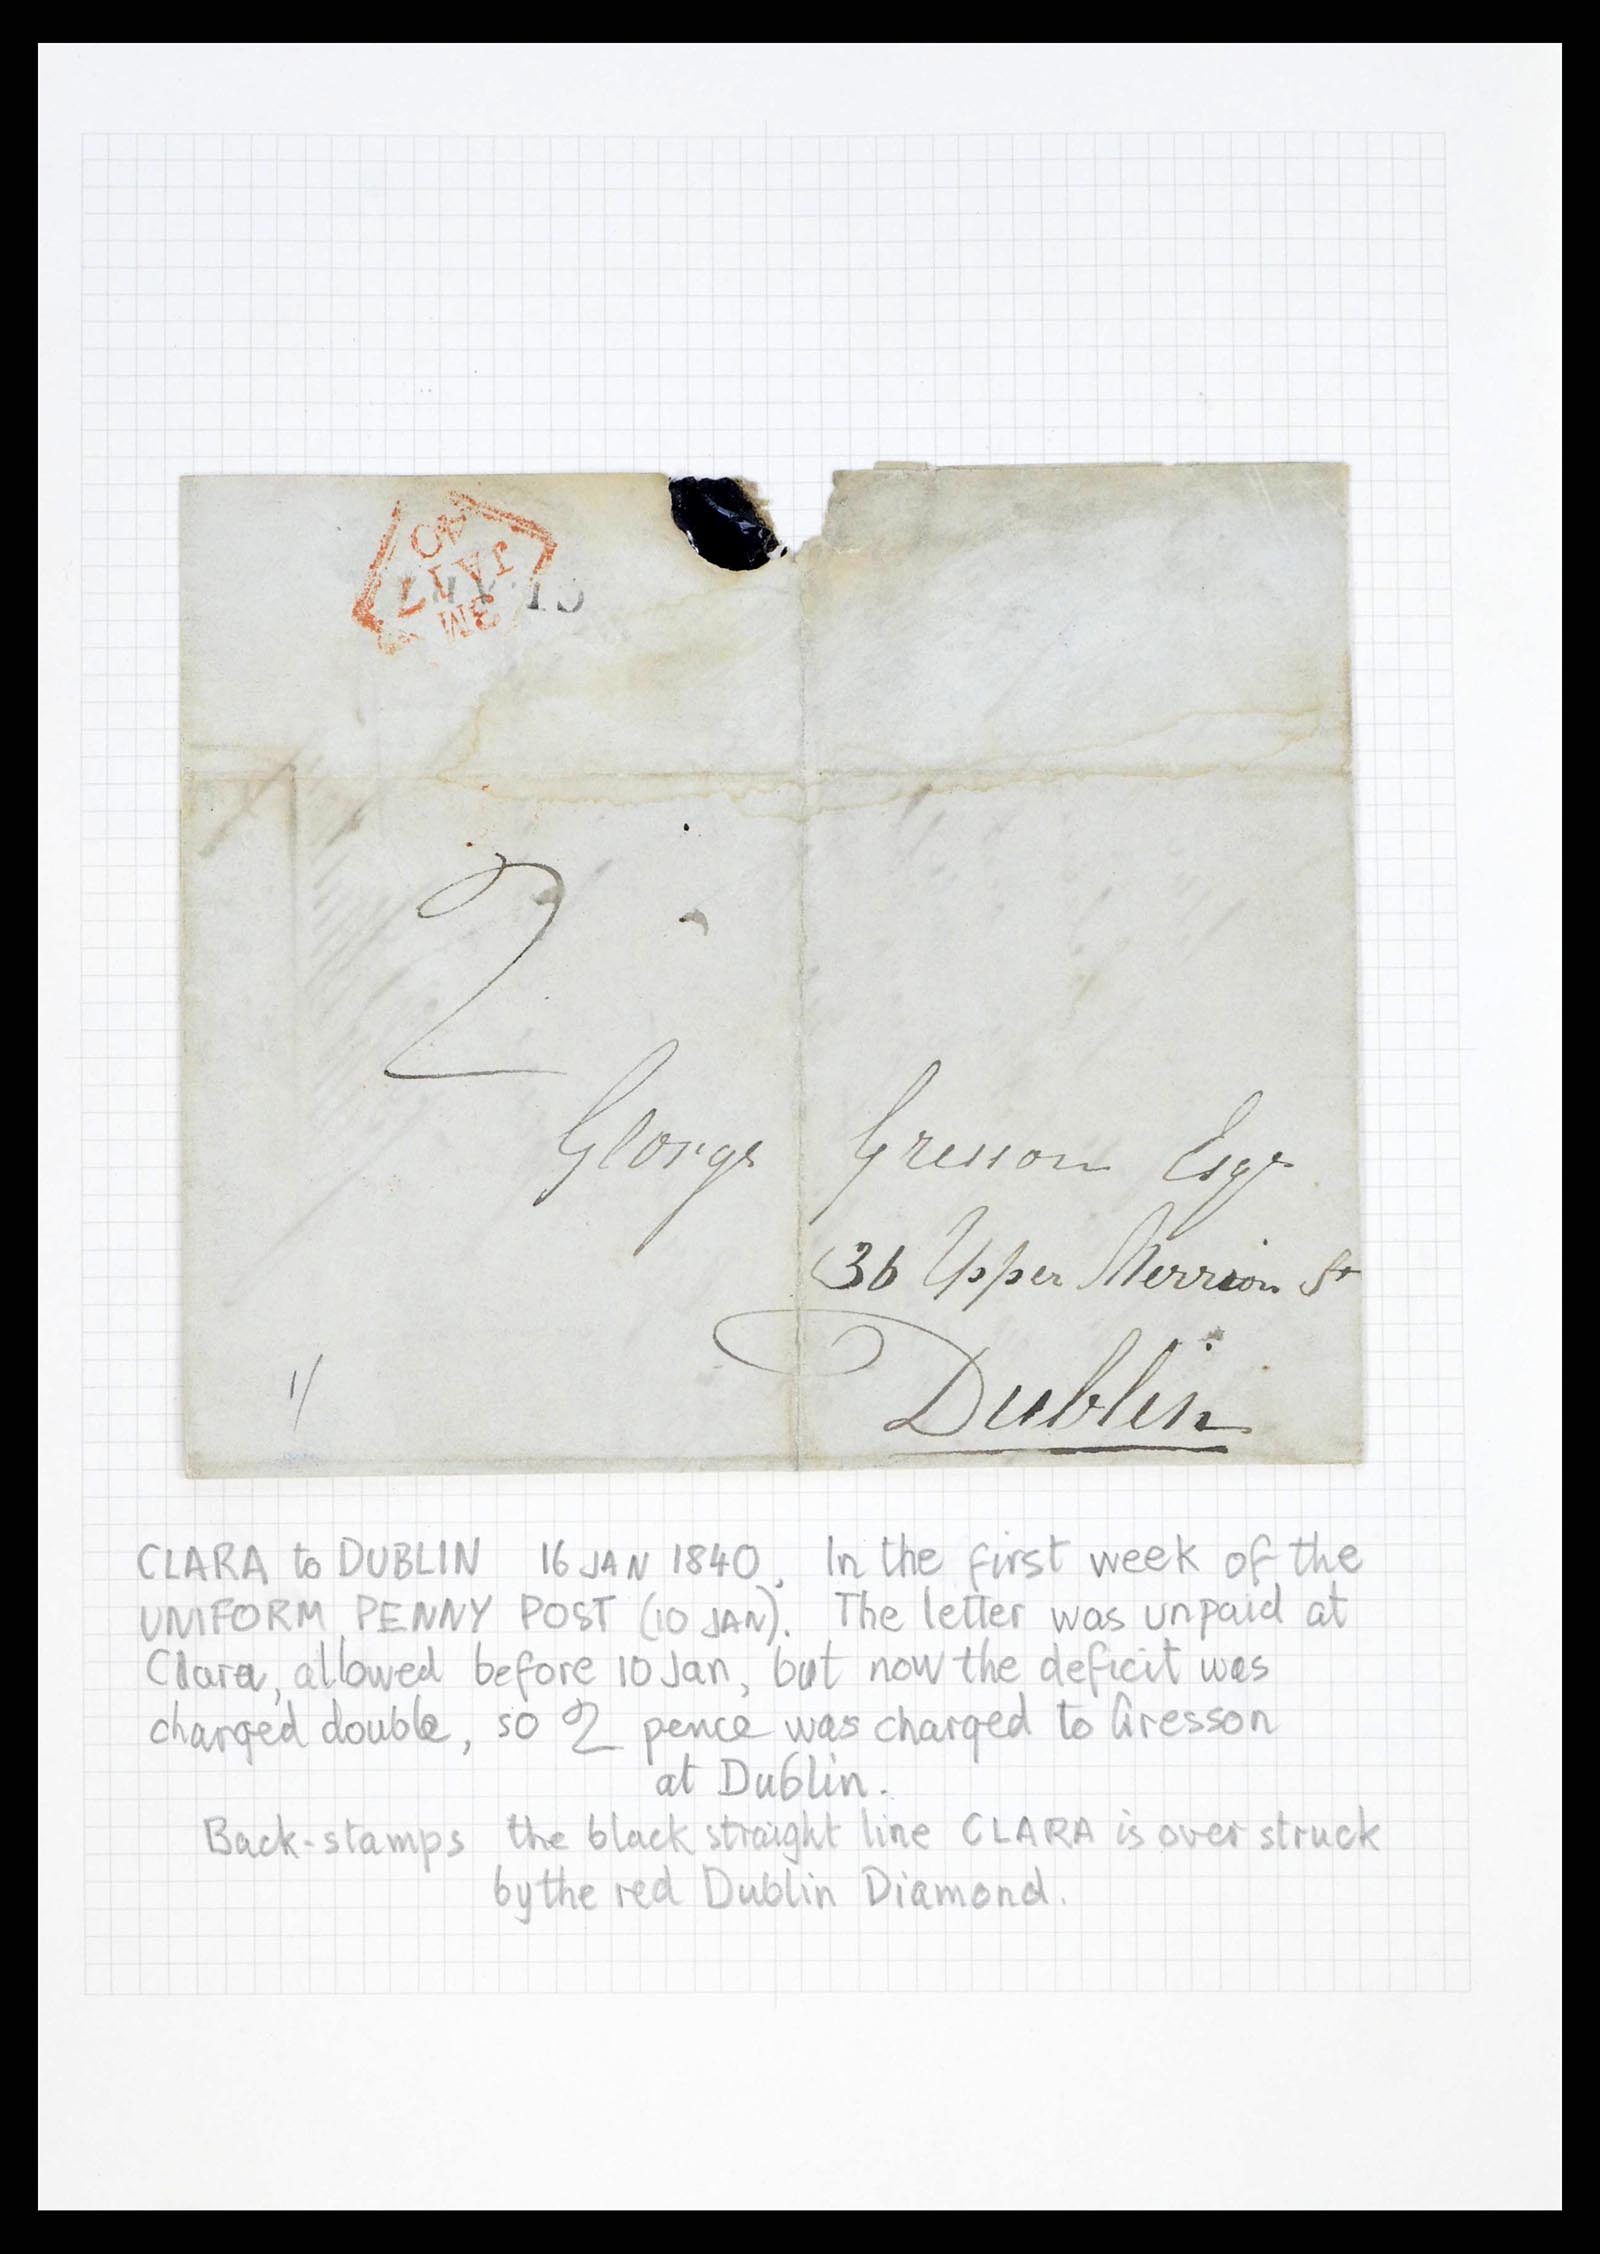 40
JA
17
2M
CLARA
2
George Gresson Esqr
36 Upper Merrion St
Dublin
1/
CLARA to DUBLIN 16 JAN 1840. In the first week of the
UNIFORM PENNY POST (10 JAN). The letter was unpaid at
Clara, allowed before 10 Jan, but now the deficit was
charged double, so 2 pence was charged to Gresson
at Dublin.
Back-stamps the black straight line CLARA is over struck
by the red Dublin Diamond.